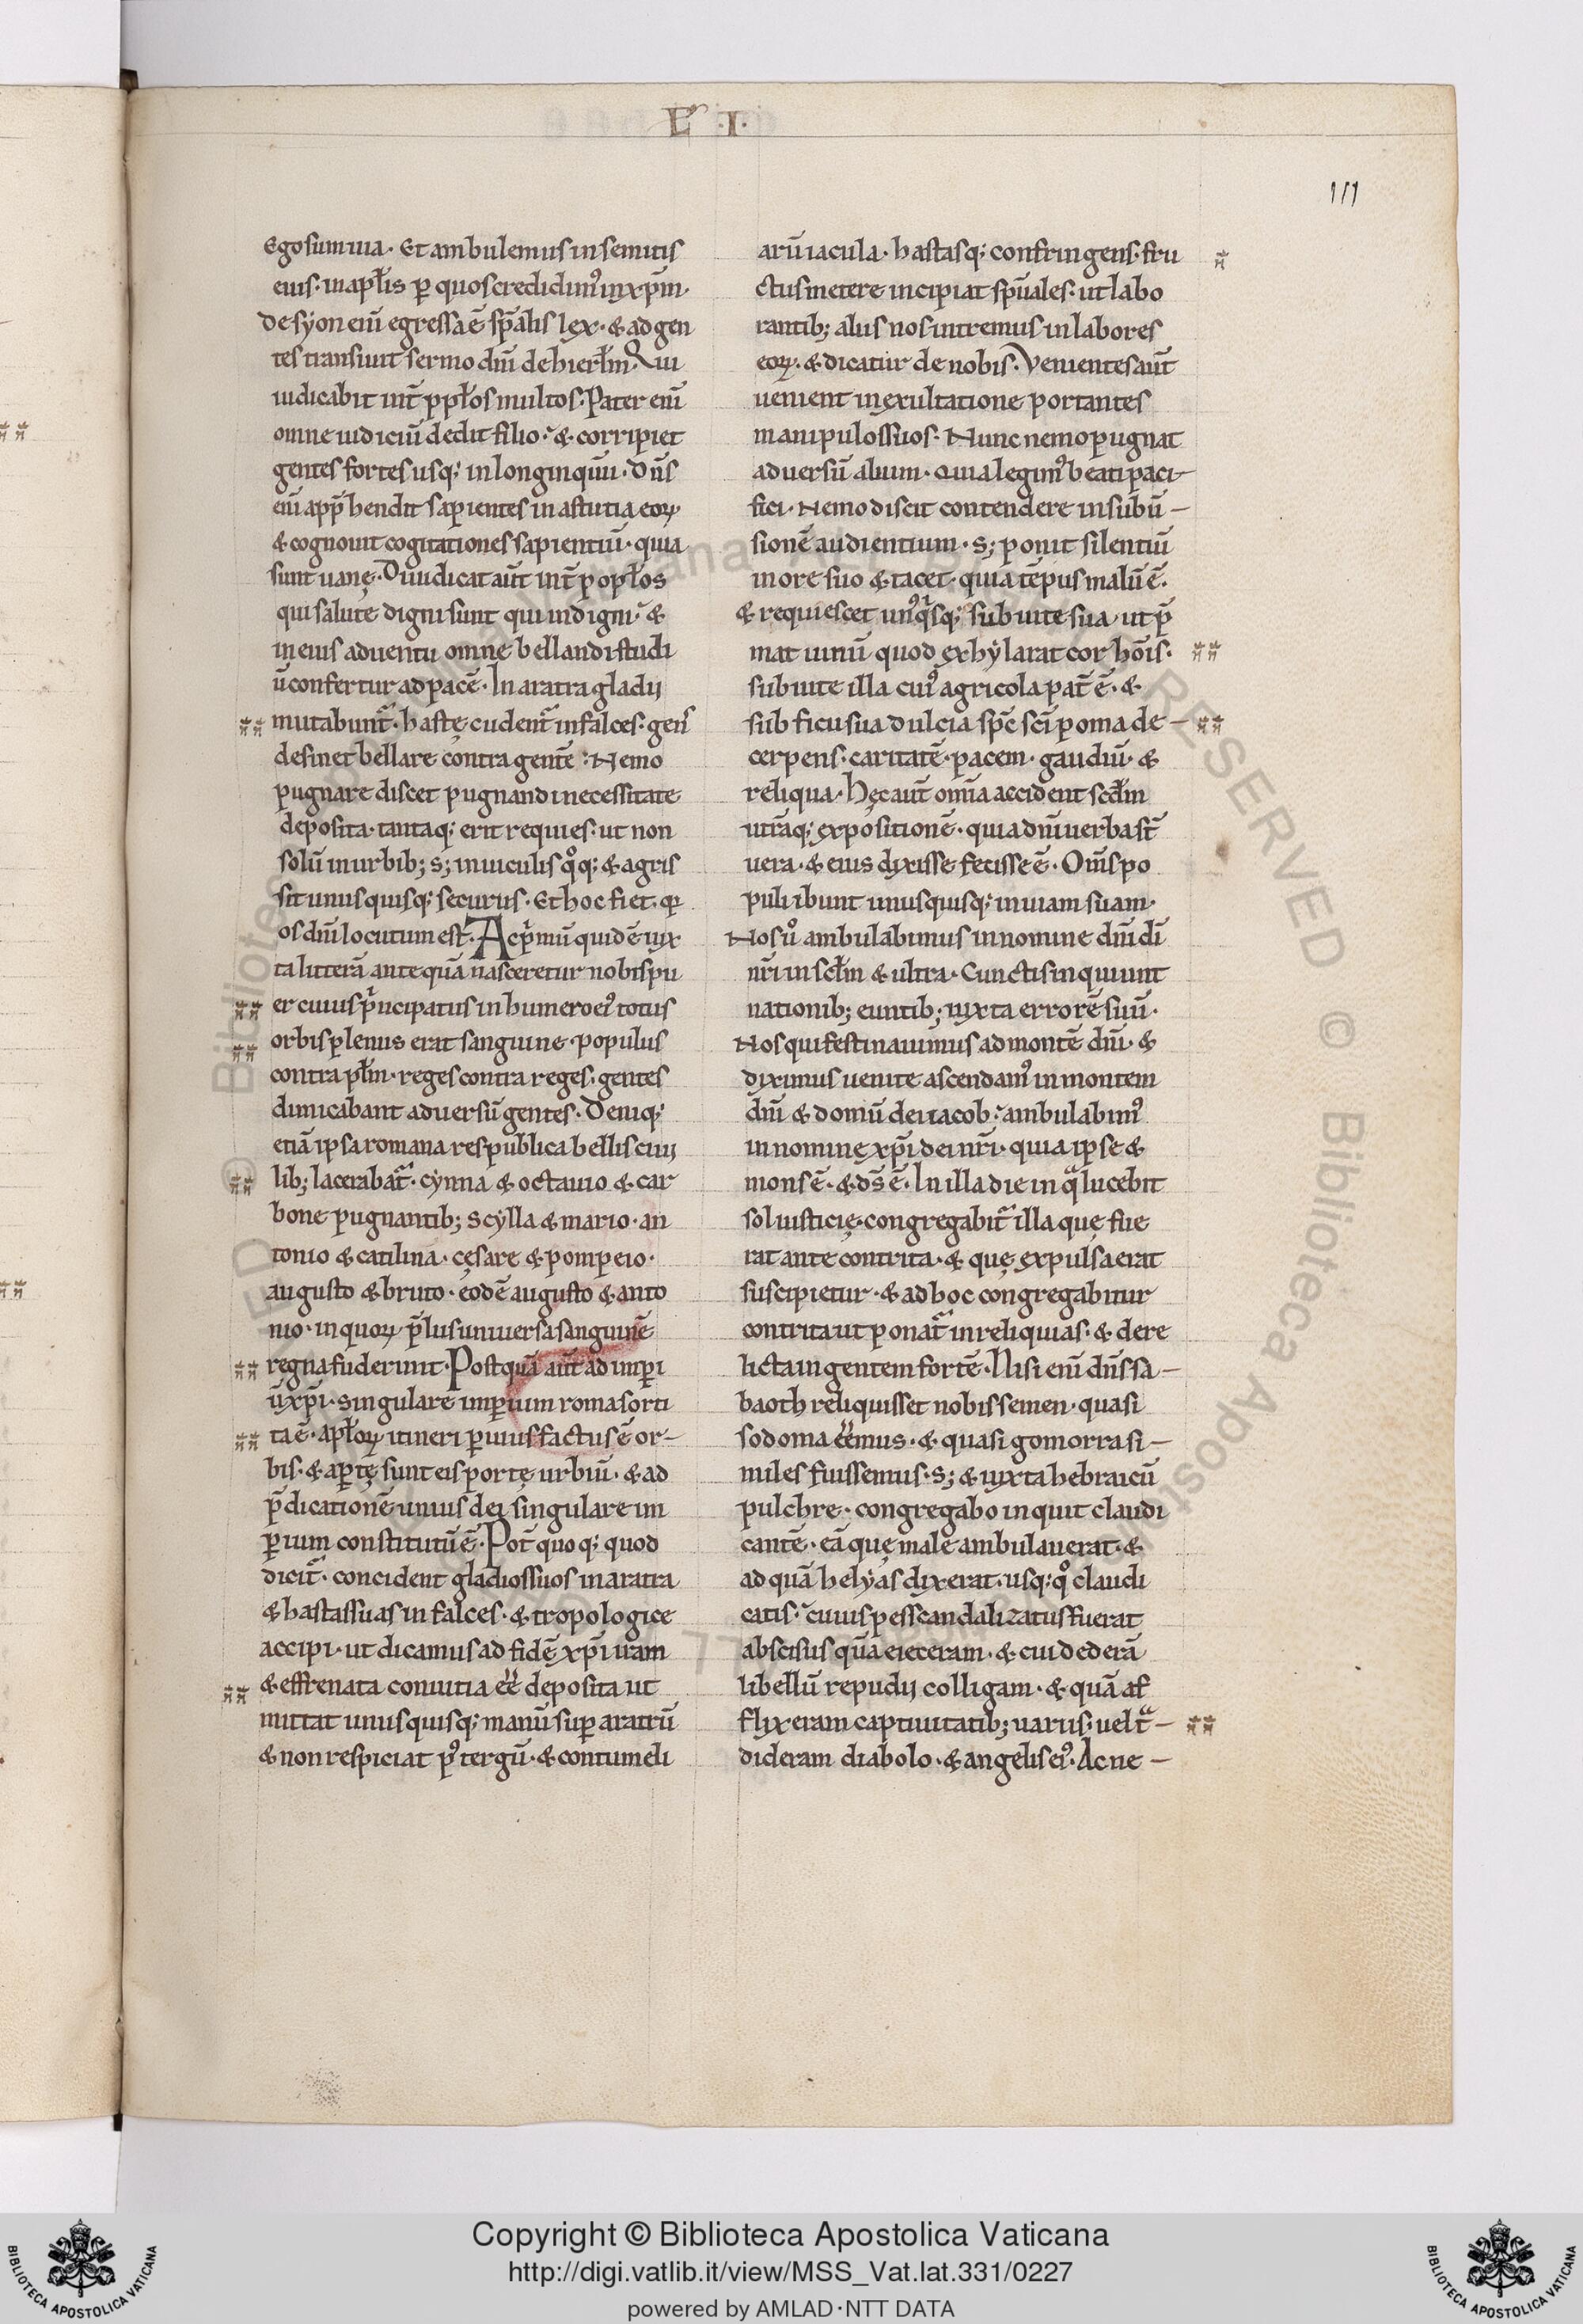 E I
111
Ego sum uia. Et ambulemus in semitis
eius. in apłis ꝑ quos credidim᷒ in xp̄m.
de syon eni᷒ egressa ē sp̄alis lex. & ad gen
tes transiuit sermo dn̄i de hierłm. Qui
iudicabit int̄ ppłos multos. Pater enī
omne iudiciū dedit filio. & corripiet
gentes fortes usq; in longinquū. Dn̄s
enī app̄hendit sapientes in astutia eoꝝ
& cognouit cogitationes sapientiū. quia
sunt uanę. Diiudicat aūt int̄ popłos
qui salute digni sunt qui indigni. &
in eius aduentu omne bellandi studi
ū confertur ad pacē. In aratra gladij
mutabunt᷑. hastę cudent᷑ in falces. gens
desinet bellare contra gentē. Nemo
pugnare discet pugnandi necessitate
deposita. tantaq; erit requies. ut non
solū in urbib; s; in uiculis qͦq; & agris
sit unusquisq; securus. Et hoc fiet. qꝛ
os dn̄i locutum est. Ac pͥmū quidē iux
ta litterā ante quā nasceretur nobis pu
er cuius pͥncipatus in humero ei᷒ totus
orbis plenus erat sanguine. populus
contra płm. reges contra reges. gentes
dimicabant aduersū gentes. Deniq;
etiā ipsa romana respublica bellis ciui
lib; lacerabat᷑. cynna & octauio & car
bone pugnantib; scylla & mario. an
tonio & catilina. cęsare & pompeio.
augusto & bruto. eodē augusto & anto
nio. in quoꝝ p̄lus uniuersa sanguinē
regna fuderunt. Postquā aūt ad imꝑi
ū xp̄i. singulare imꝑium roma sorti
ta ē. apłoꝝ itineri ꝑuius factus ē or-
bis. & aꝑtę sunt eis portę urbiū. & ad
p̄dicationē unius dei singulare im
ꝑium constitutū ē. Pot̄ quoq; quod
dicit᷑. concident gladios suos in aratra
& hastas suas in falces. & tropologice
accipi. ut dicamus ad fidē xp̄i iram
& effrenata conuitia eē deposita ut
mittat unusquisq; manū suꝑ aratrū
& non respiciat p᷒ tergū. & contumeli
arū iacula. hastasq; confringens. fru
ctus metere incipiat sp̄uales. ut labo
rantib; aliis nos intremus in labores
eoꝝ. & dicatur de nobis. Venientes aūt
uenient in exultatione portantes
manipulos suos. Nunc nemo pugnat
aduersū alium. Quia legim᷒ beati paci-
fici. Nemo discit contendere in subū-
sionē audientium. s; ponit silentiū
in ore suo & tacet. quia tēpus malū ē.
& requiescet un᷒qͥsq; sub uite sua. ut p̄
mat uinū quod exhylarat cor hōis.
sub uite illa cui᷒ agricola pat̄ ē. &
sub ficu sua dulcia sp̄c scī poma de-
cerpens. caritatē. pacem. gaudiū. &
reliqua. Hęc aūt omīa accident scdm̄
utrāq; expositionē. quia dn̄i uerba st̄
uera. & eius dixisse fecisse ē. Oms̄ po
puli ibunt unusquisq; in uiam suam.
Nos uͦ ambulabimus in nomine dn̄i dī
nr̄i in scłm & ultra. Cunctis inquiunt
nationib; euntib; iuxta errorē suū.
Nos qui festinauimus ad montē dn̄i. &
diximus uenite ascendam᷒ in montem
dn̄i & domū dei iacob. ambulabim᷒
in nomine xp̄i dei nr̄i. quia ipse &
mons ē. & ds̄ ē. In illa die in qᵃ lucebit
sol iusticię. congregabit᷑ illa quę fue
rat ante contrita. & quę expulsa erat
suscipietur. & ad hoc congregabitur
contrita ut ponat᷑ in reliquias. & dere
licta in gentem fortē. Nisi enī dn̄s sa-
baoth reliquisset nobis semen. quasi
sodoma eēmus. & quasi gomorra si-
miles fuissemus. s; & iuxta hebraicū
pulchre. congregabo inquit claudi
cantē. eā quę male ambulauerat. &
ad quā helyas dixerat. usq; qͦ claudi
catis. cuius pes scandalizatus fuerat
abscisus quā eieceram. & cui dederā
libellū repudij colligam. & quā af
flixeram captiuitatib; uariis; uel tᵃ-
dideram diabolo. & angelis ei᷒. Ac ne-
Copyright © Biblioteca Apostolica Vaticana
http://digi.vatlib.it/view/MSS_Vat.lat.331/0227
powered by AMLAD·NTT DATA
BIBLIOTECA APOSTOLICA VATICANA
BIBLIOTECA APOSTOLICA VATICANA